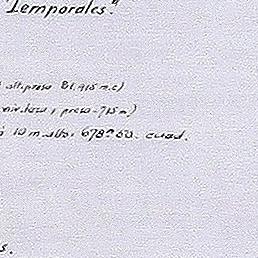 Temporales."
alt. presa 81,915 m.c)
y presa - 715 m.)
10 m. alto. 678 m 50. cuad.
s.